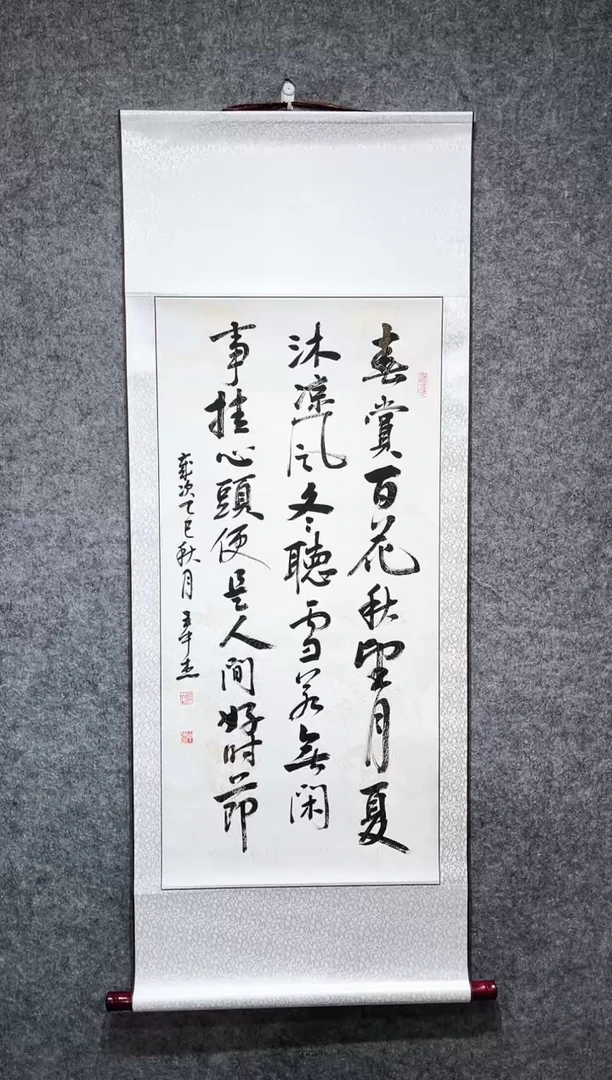 春賞百花秋望月夏
沐凉風冬聽雪若無閑
事挂心頭便是人間好时節
歲次乙巳秋月